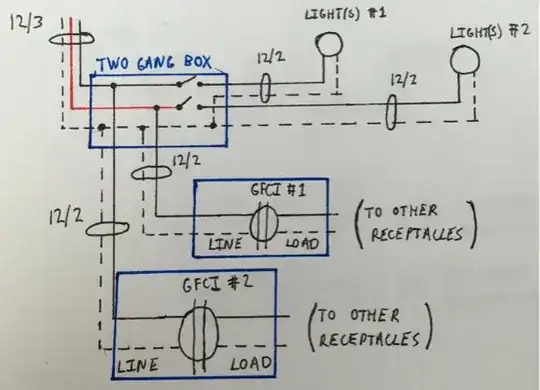 12/3
LIGHT(S) #1
LIGHT(S) #2
TWO GANG BOX
12/2
12/2
12/2
12/2
GFCI #1
LINE
LOAD
(TO OTHER
RECEPTACLES)
GFCI #2
LINE
LOAD
(TO OTHER
RECEPTACLES)